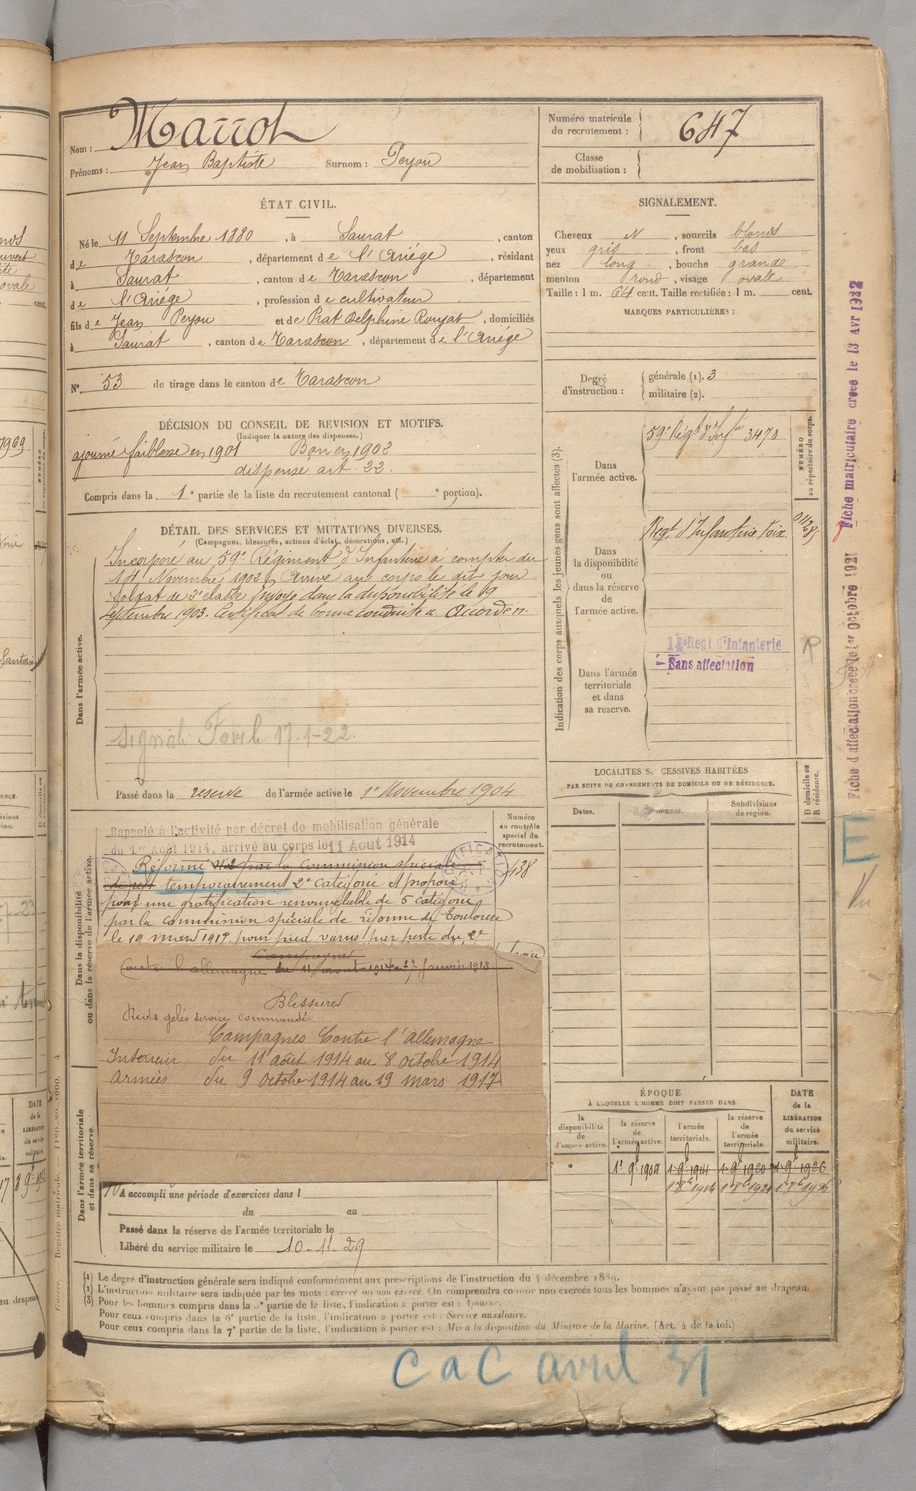 Nom : Marrot
Prénoms : Jean Baptiste Surnom : Peyou
Numéro matricule du recrutement : 647
Classe de mobilisation :
ÉTAT CIVIL.
Né le 11 Septembre 1880, à Saurat, canton
de Tarascon, département de l'Ariège, résidant
à Saurat, canton de Tarascon, département
de l'Ariège, profession de cultivateur
fils de Jean Peyou et de Prat Delphine Rougat, domiciliés
à Saurat, canton de Tarascon, département de l'Ariège
N° 53 de tirage dans le canton de Tarascon
SIGNALEMENT.
Cheveux N, sourcils blonds
yeux gris, front bas
nez long, bouche grande
menton rond, visage ovale
Taille : 1 m. 64 cent. Taille rectifiée : 1 m. cent.
MARQUES PARTICULIÈRES :
Degré d'instruction : générale (1). 3
militaire (2).
DÉCISION DU CONSEIL DE REVISION ET MOTIFS.
(Indiquer la nature des dispenses.)
ajourné faiblesse en 1901 Bon en 1902
dispense art. 22
Compris dans la 1e partie de la liste du recrutement cantonal ( e portion).
DÉTAIL DES SERVICES ET MUTATIONS DIVERSES.
(Campagnes, blessures, actions d'éclat, décorations, etc.)
Dans l'armée active.
Incorporé au 59e Régiment d'Infanterie à compter du
Novembre 1902. Arrivé au corps le dit jour
Soldat de 2e classe. Envoyé dans la disponibilité le 19
Septembre 1903. Certificat de bonne conduite "Accordé".
Signalé Foville 17-1-22
Passé dans la réserve de l'armée active le 1er Novembre 1904
Indication des corps auxquels les jeunes gens sont affectés (3).
NUMÉRO au répertoire du corps.
Dans l'armée active.
59e Régt d'Infie 3470
Dans la disponibilité ou dans la réserve de l'armée active.
Régt d'Infanterie Foix
Dans l'armée territoriale et dans sa réserve.
14e Regt d'Infanterie
Sans affectation
LOCALITÉS SUCCESSIVES HABITÉES
PAR SUITE DE CHANGEMENTS DE DOMICILE OU DE RÉSIDENCE.
Dates.
Communes.
Subdivisions de région.
D domicile ou R résidence.
Dans la disponibilité ou dans la réserve de l'armée active.
Numéro au contrôle spécial du recrutement.
438
Rappelé à l'activité par décret de mobilisation générale
du 1er Août 1914, arrivé au corps le 11 Août 1914
Réformé N°2 par la Commission spéciale
temporairement 2e catégorie et proposé
pour une gratification renouvelable de 5 catégorie
par la commission spéciale de réforme de Toulouse
le 19 mars 1917 pour pied varus par perte du 2e
Campagnes
Contre l'allemagne du 11 août 1914 a Janvier 1918
Blessures
Pieds gelés service commandé
Campagnes Contre l'allemagne
Intérieur du 11 août 1914 au 8 octobre 1914
Armées du 9 octobre 1914 au 19 mars 1917
Dans l'armée territoriale et dans sa réserve.
A accompli une période d'exercices dans l
du au
Passé dans la réserve de l'armée territoriale le
Libéré du service militaire le 10-11-29
ÉPOQUE
À LAQUELLE L'HOMME DOIT PASSER DANS
la disponibilité de l'armée active.
la réserve de l'armée active.
l'armée territoriale.
la réserve de l'armée territoriale.
DATE de la LIBÉRATION du service militaire.
(1) Le degré d'instruction générale sera indiqué conformément aux prescriptions de l'instruction du 4 décembre 1889.
(2) L'instruction militaire sera indiquée par les mots : exercé ou non exercé. On comprendra comme non exercés tous les hommes n'ayant pas passé au drapeau.
(3) Pour les hommes compris dans la 5e partie de la liste, l'indication à porter est : Ajourné.
Pour ceux compris dans la 6e partie de la liste, l'indication à porter est : Service auxiliaire.
Pour ceux compris dans la 7e partie de la liste, l'indication à porter est : Mis à la disposition du Ministre de la Marine. (Art. 4 de la loi.)
CaC avril 31
Fiche d'affectation créée le 1er Octobre 1921
Fiche matriculaire créée le 13 Avr 1922
E